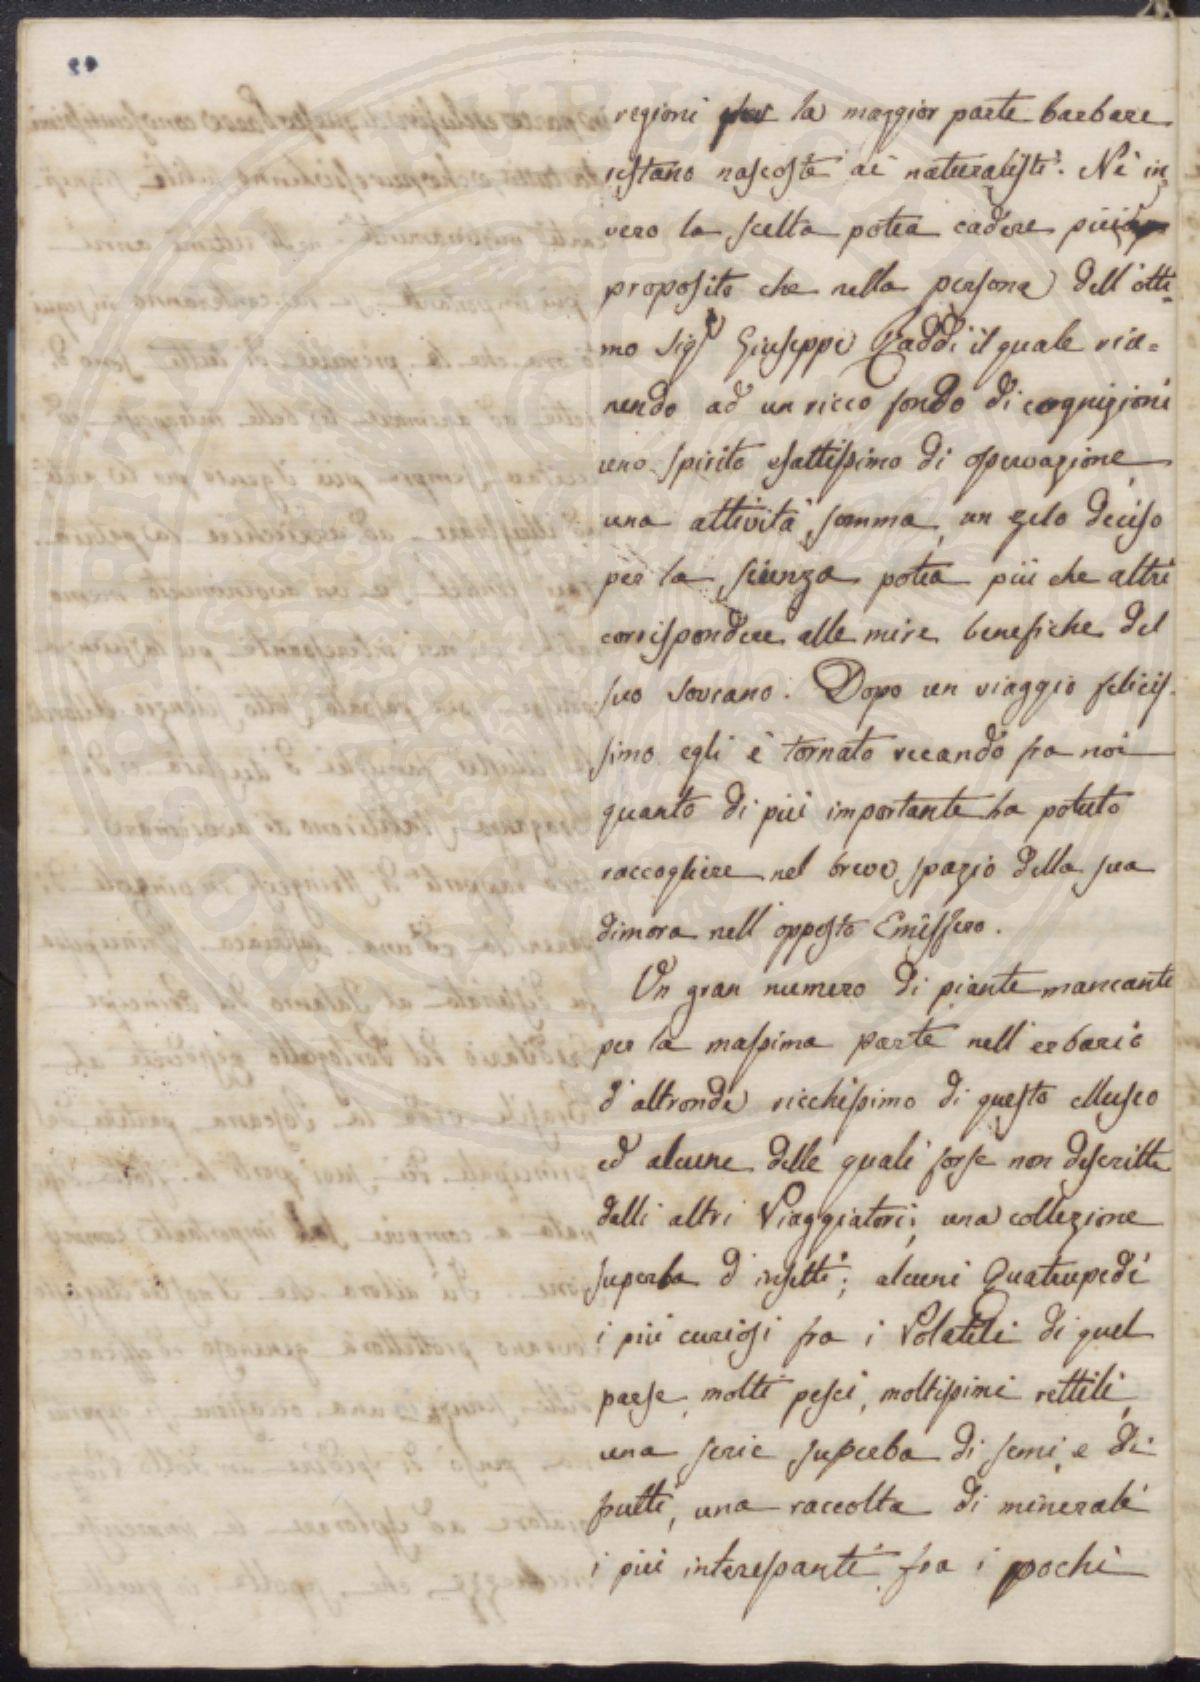 regioni per la maggior parte barbare
restano nascoste ai naturalisti. Nè in
vero la scelta potea cadere più a
proposito che nella persona dell'otti=
mo Sigr Giuseppe Raddi il quale riu=
nendo ad un ricco fondo di cognizioni
uno spirito esattissimo di osservazione,
una attività somma, un zelo deciso
per la scienza potea più che altri
corrispondere alle mire benefiche del
suo Sovrano. Dopo un viaggio felicis-
simo egli è tornato recando fra noi
quanto di più importante ha potuto
raccogliere nel breve spazio della sua
dimora nell'opposto Emisfero.
Un gran numero di piante mancante
per la massima parte nell'erbario
d'altronde ricchissimo di questo Museo
ed alcune delle quali forse non descritte
dalli altri Viaggiatori; una collezione
superba d'insetti; alcuni Quatrupedi
i più curiosi fra i Volatili di quel
paese, molti pesci, moltissimi rettili,
una serie superba di semi, e di
frutti, una raccolta di minerali
i più interessanti fra i pochi